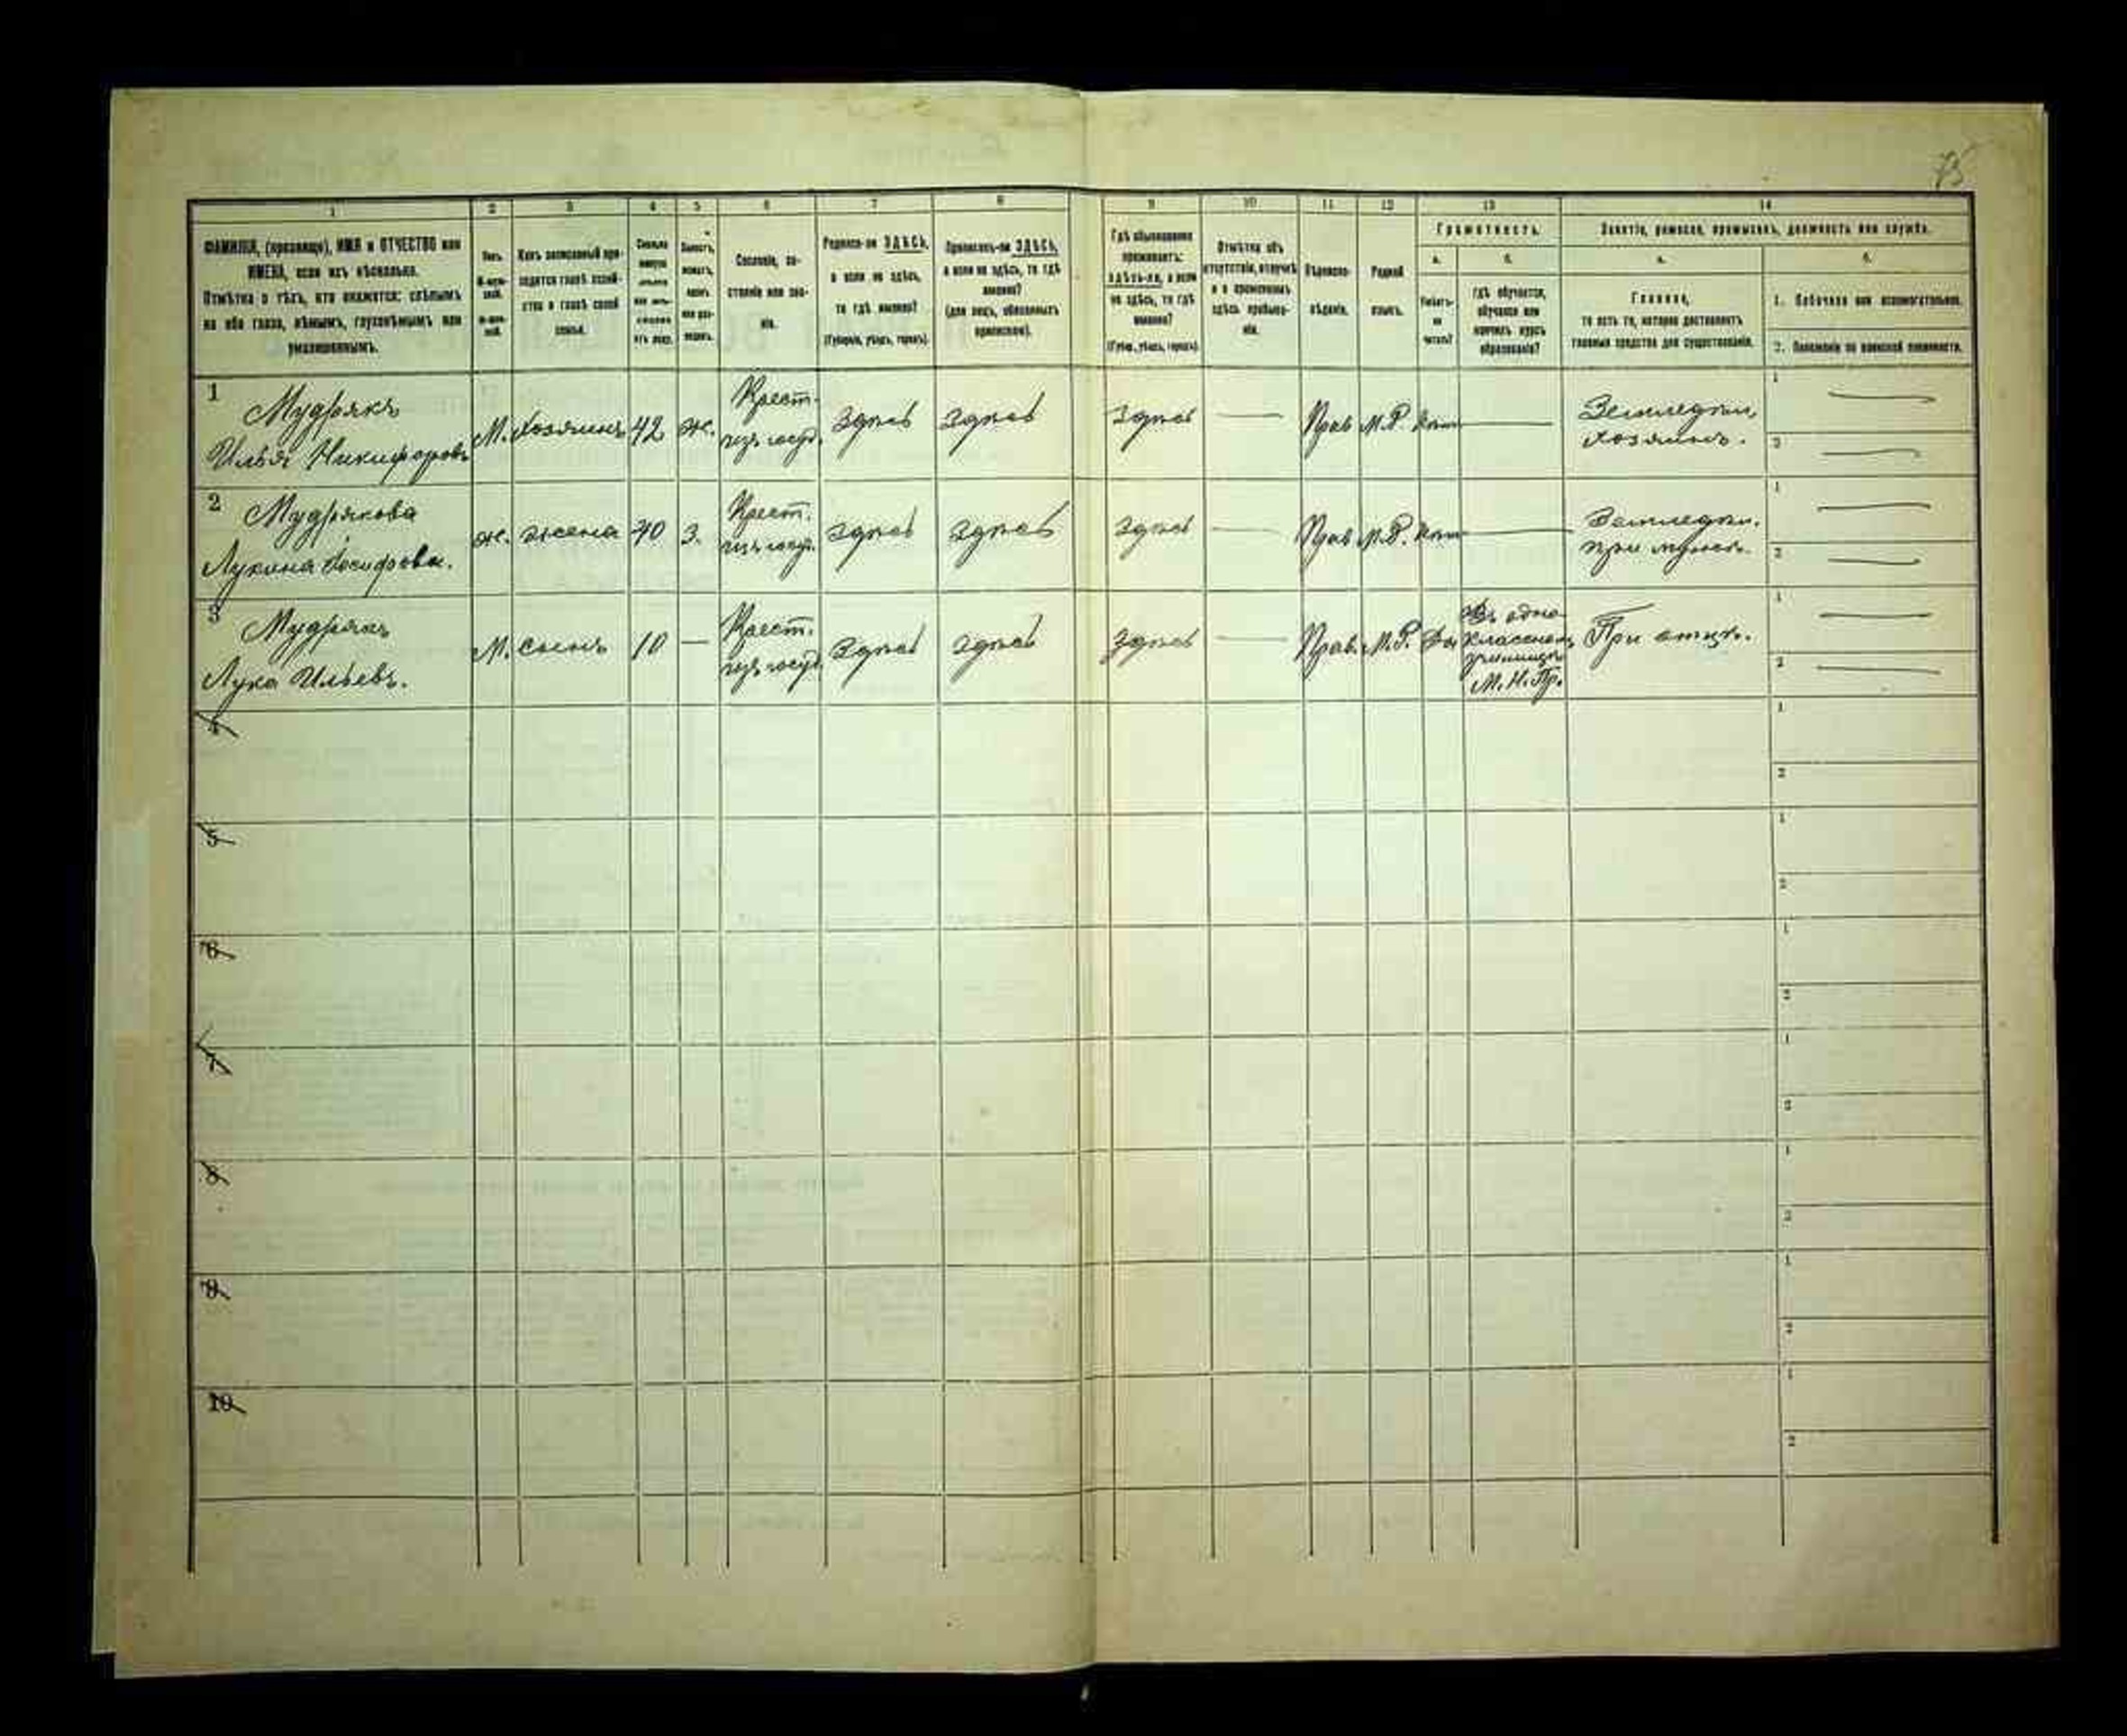 75
1 2 3 4 5 6 7 8 9 10 11 12 13 14
ФАМИЛІЯ, (прозвище), ИМЯ и ОТЧЕСТВО или
ИМЕНА, если ихъ нѣсколько.
Отмѣтка о тѣхъ, кто окажется: слѣпымъ
на оба глаза, нѣмымъ, глухонѣмымъ или
умалишеннымъ.
Полъ.
Какъ записанный при-
ходится главѣ хозяй-
ства и главѣ своей
семьи.
Сословіе, со-
стояніе или зва-
ніе.
Родился-ли ЗДѢСЬ,
а если не здѣсь,
то гдѣ именно?
(Губернія, уѣздъ, городъ).
Приписанъ-ли ЗДѢСЬ,
а если не здѣсь, то гдѣ
именно?
(для лицъ, обязанныхъ
припискою).
Гдѣ обыкновенно
проживаетъ:
здѣсь-ли, а если
не здѣсь, то гдѣ
именно?
(Губер., уѣздъ, городъ).
Отмѣтка объ
отсутствіи, отлучкѣ
и о временномъ
здѣсь пребыва-
ніи.
Вѣроиспо-
вѣданіе.
Родной
языкъ.
Грамотность.
а.
Умѣетъ-
ли
читать?
б.
гдѣ обучается,
обучался или
кончилъ курсъ
образованія?
Занятіе, ремесло, промыселъ, должность или служба.
а.
Главное,
то есть то, которое доставляетъ
главныя средства для существованія.
б.
1. Побочное или вспомогательное.
2. Положеніе по воинской повинности.
1 Мудрякъ
Илья Никифоровъ
М. Хозяинъ 42 ж.
Крест.
изъ госуд.
Здѣсь Здѣсь Здѣсь — Прав М.Р. Нѣт —
Земледѣлн.
хозяинъ.
1 —
2 —
2 Мудрякова
Лукина Іосифова.
ж. жена 40 З.
Крест.
изъ госуд.
Здѣсь Здѣсь Здѣсь — Прав М.Р. Нѣт —
Земледѣл.
при мужѣ.
1 —
2 —
3 Мудрякъ
Лука Ильевъ.
М. сынъ 10 —
Крест.
изъ госуд
Здѣсь Здѣсь Здѣсь — Прав. М.Р. Да
Въ одно-
классномъ
училищѣ
М. Н. Пр.
При отцѣ.
1 —
2 —
4
1
2
5
1
2
6
1
2
7
1
2
8
1
2
9
1
2
10
1
2